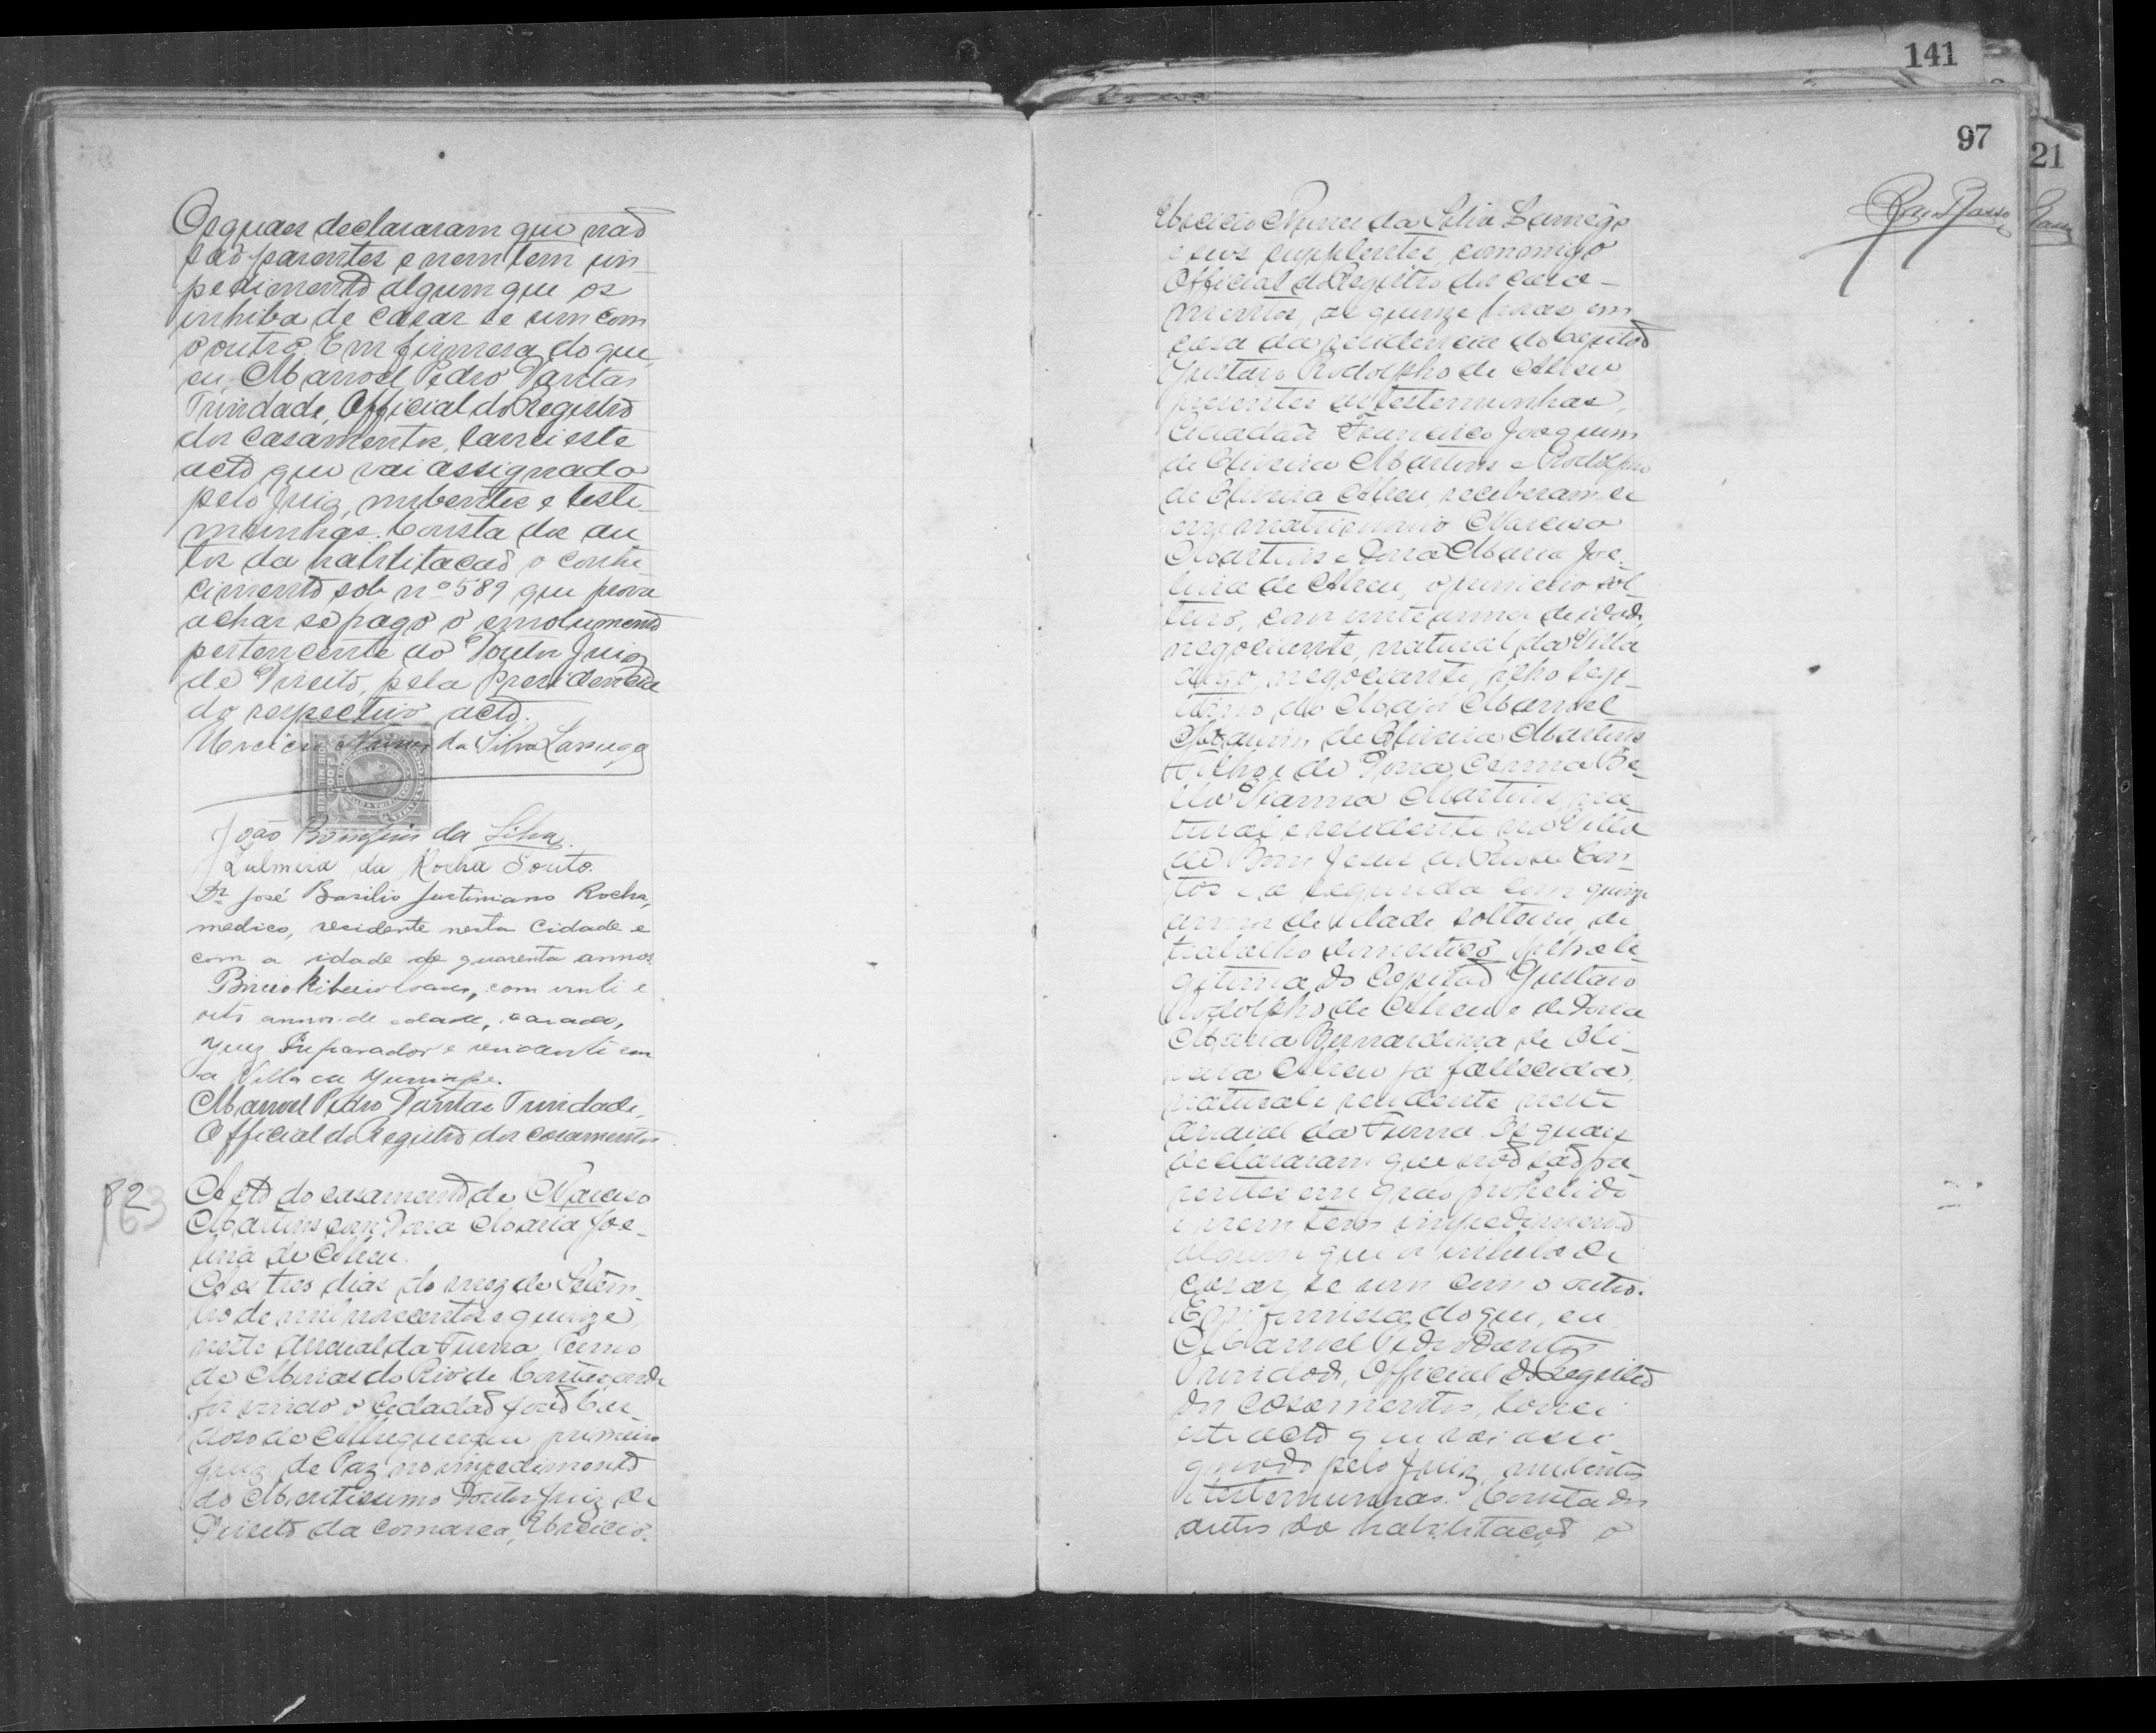 141
97
21
Os quaes declararam que não
são parentes e nem tem im-
pedimento algum que os
inhiba de casar se um com
o outro. Em firmesa do que,
eu, Manoel Pedro Dantas
Trindade, Official do Registro
dos casamentos, lavrei este
acto que vai assignado
pelo Juiz, nubentes e teste-
munhas. Consta dos au
tos da habilitação o conhe
cimento sob nº 589 que prova
achar se pago o emolumento
pertencente ao Doutor Juiz
de Direito, pela presidencia
do respectivo acto.
Nunes da Silva Lamego
João Bomfim da Silva.
Zulmira da Rocha Souto.
Dr José Basilio Justiniano Rocha,
medico, residente nesta Cidade e
com a idade de quarenta annos.
Ribeiro com vinte e
oito annos de idade, casado,
Juiz Preparador e residente em
a Villa de
Manoel Pedro Dantas Trindade,
Official do Registro dos casamentos
82
163
Acto do casamento de Narciso
Martins com Dona Maria Joe-
lina de Abreu.
Aos tres dias do mez de Setem-
bro de mil novecentos e quinze,
neste Arraial da Furna, Termo
de Minas do Rio de Contas, onde
foi vindo o Cidadão João Car-
doso de primeiro
Juiz de Paz no impedimento
do Meritissimo Doutor Juiz de
Direito da comarca,
Nunes da Silva Lamego
e seus supplentes, commigo
Official do Registro de casa-
mentos, as quinze horas em
casa da residencia do Capitão
Gustavo Rodolpho de Abreu,
presentes as testemunhas,
Cidadão Francisco Joaquim
de Oliveira Martins e Rodolpho
de Oliveira Abreu, receberam-se
em matrimonio Narciso
Martins e Dona Maria Joe-
lina de Abreu, o primeiro sol-
teiro, com vinte annos de idade,
negociante, natural da Villa
negociante, filho legi-
timo do Major Manoel
Joaquim de Oliveira Martins
Filho e de Dona
Vianna Martins, na-
tural e residente na Villa
do Bom Jesus do Rio de Con-
tas e a segunda com quinze
annos de idade, solteira, de
trabalho domestico, filha le-
gitima do Capitão Gustavo
Rodolpho de Abreu e de Dona
Maria Bernardina de Oli-
veira Abreu já fallecida,
natural e residente neste
arraial da Furna. Os quaes
declararam que não são pa-
rentes em grao prohibido
e nem tem impedimento
algum que os inhiba de
casar se um com o outro.
Em firmesa do que, eu
Manoel Pedro Dantas
Trindade, Official do Registro
dos casamentos, lavrei
este acto que vai assi-
gnado pelo Juiz, nubentes
e testemunhas. Consta dos
autos da habilitação o